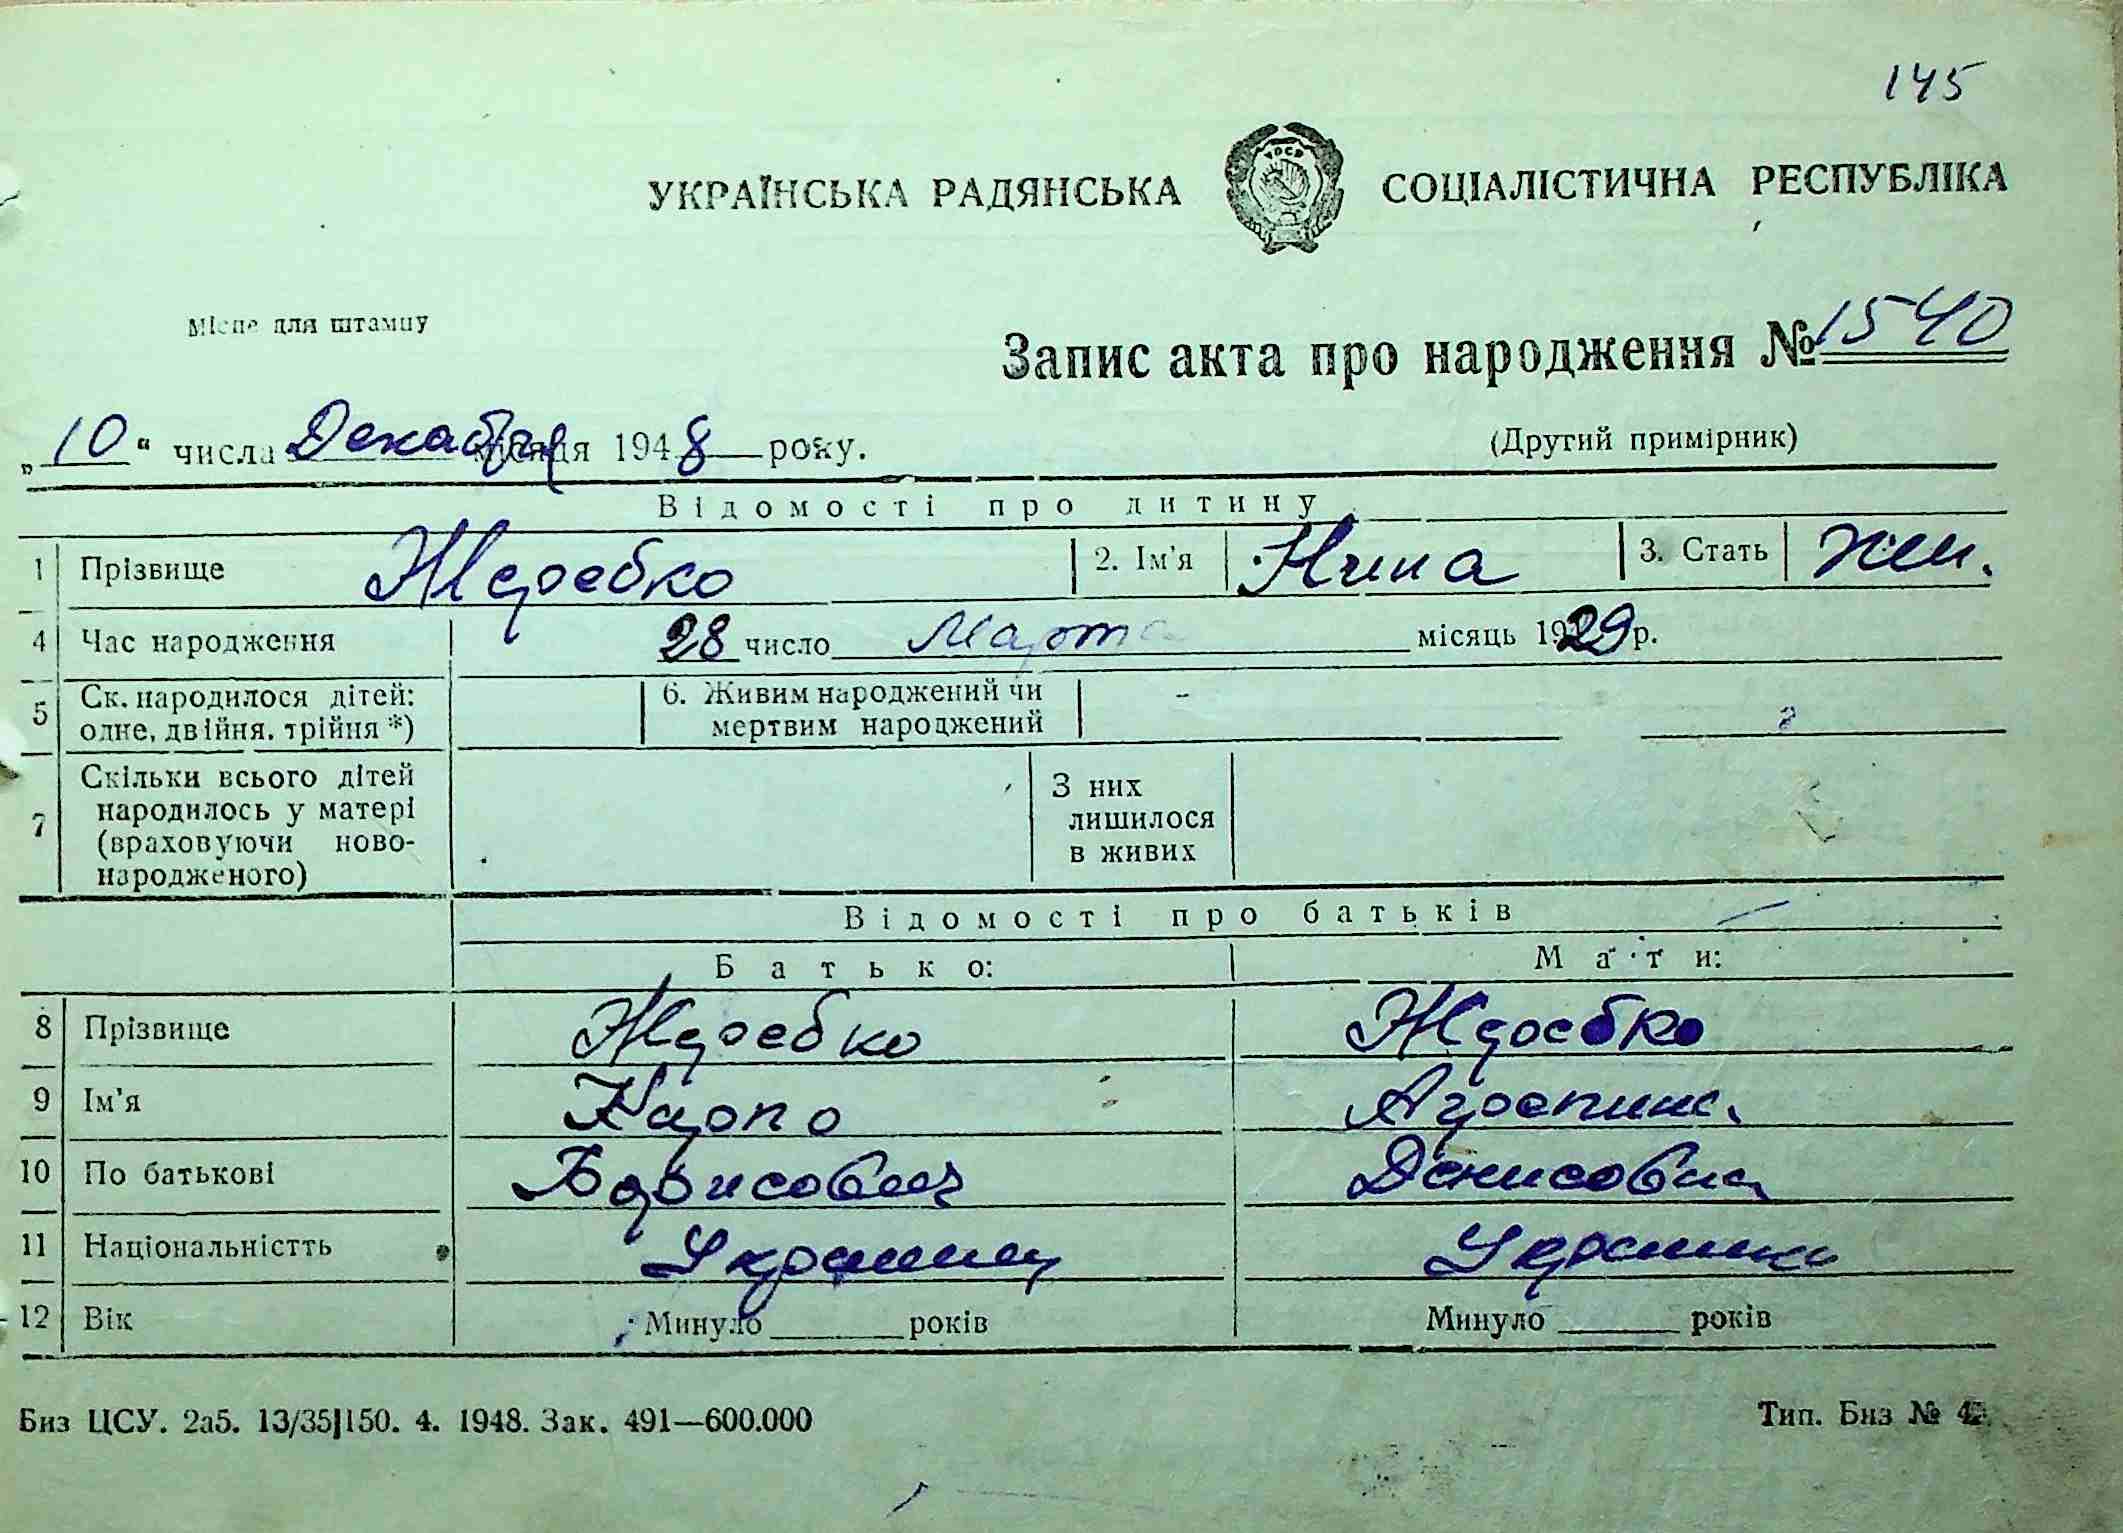 145
УКРАЇНСЬКА РАДЯНСЬКА СОЦІАЛІСТИЧНА РЕСПУБЛІКА
Місце для штампу
Запис акта про народження № 1540
„10“ числа Декабря місяця 1948 року.
(Другий примірник)
Відомості про дитину
1 Прізвище Жеребко 2. Ім'я Нина 3. Стать жен.
4 Час народження 28 число Марта місяць 1929 р.
5 Ск. народилося дітей: одне, двійня, трійня *) 6. Живим народжений чи мертвим народжений -
7 Скільки всього дітей народилось у матері (враховуючи ново-народженого) З них лишилося в живих
Відомості про батьків
Батько: Мати:
8 Прізвище Жеребко Жеребко
9 Ім'я Карпо Агрепина
10 По батькові Борисович Денисовна
11 Національністть Украинец Украинка
12 Вік Минуло років Минуло років
Биз ЦСУ. 2а5. 13/35|150. 4. 1948. Зак. 491—600.000 Тип. Биз №